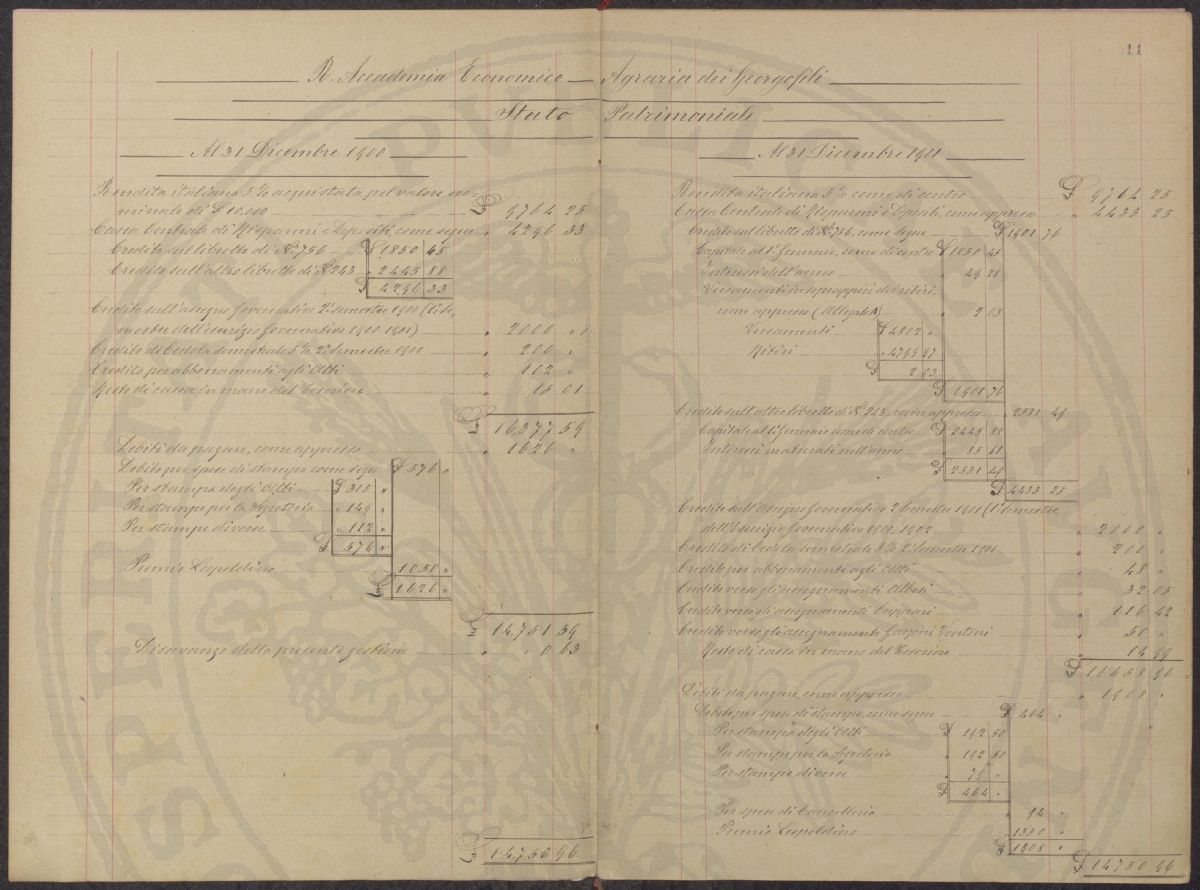 11
R. Accademia Economico Agraria dei Georgofili
Stato Patrimoniale
Al 31 Dicembre 1900
Rendita italiana 5% acquistata pel valore no-
minale di £ 10.000 £ 9764 25
Cassa Centrale di Risparmi e Depositi come segue „ 4296 33
Credito sul libretto di N. 756 £ 1850 45
Credito sull'altro libretto di N. 243 „ 2445 88
£ 4296 33
Credito sull'assegno Governativo 2° semestre 1900 (1° Se-
mestre dell'esercizio Governativo 1900-1901) „ 2000 „
Credito di Cedola semestrale 5% 2° Semestre 1900 „ 200 „
Credito per abbonamenti agli Atti „ 102 „
Resto di cassa in mano del Tesoriere „ 15 01
£ 16377 59
Debiti da pagare, come appresso „ 1626 „
Debito per spese di stampa come segue £ 576 „
Per stampa degli Atti £ 315 „
Per stampe per la Segreteria „ 149 „
Per stampe diverse „ 112 „
£ 576 „
Premio Leopoldino „ 1050 „
£ 1626 „
£ 14751 59
Disavanzo della presente gestione „ 0 63
£ 14750 96
Al 31 Dicembre 1901
Rendita italiana 5% come di contro £ 9764 25
Cassa Centrale di Risparmi e Depositi, come appresso „ 4433 25
Credito sul libretto di N. 756, come segue £ 1901 76
Capitale al 1° Gennaio, come di contro £ 1850 45
Interessi dell'anno „ 49 28
Versamenti in soprappiù dei ritiri,
come appresso (Allegato A) „ 2 03
Versamenti £ 4802 „
Ritiri „ 4799 97
£ 2 03
£ 1901 76
Credito sull'altro libretto di N. 243, come appresso „ 2531 49
Capitale al 1° Gennaio come di contro £ 2445 88
Interessi maturati nell'anno „ 85 61
£ 2531 49
£ 4433 25
Credito sull'Assegno Governativo 2° Semestre 1901 (1° Semestre
dell'Esercizio Governativo 1901-1902 „ 2000 „
Credito di Cedola semestrale 5% 2° Semestre 1901 „ 200 „
Credito per abbonamenti agli Atti „ 48 „
Credito verso gli assegnamenti Alberti „ 32 05
Credito verso gli assegnamenti Cuppari „ 116 42
Credito verso gli assegnamenti „ 50 „
Resto di cassa in mano del Tesoriere „ 14 99
£ 16658 96
Debiti da pagare, come appresso „ 1908 „
Debito per spese di stampa, come segue £ 464 „
Per stampa degli Atti £ 192 50
Per stampe per la Segreteria „ 192 50
Per stampe diverse „ 79 „
£ 464 „
Per spese di Cancelleria „ 94 „
Premio Leopoldino „ 1350 „
£ 1908 „
£ 14750 96